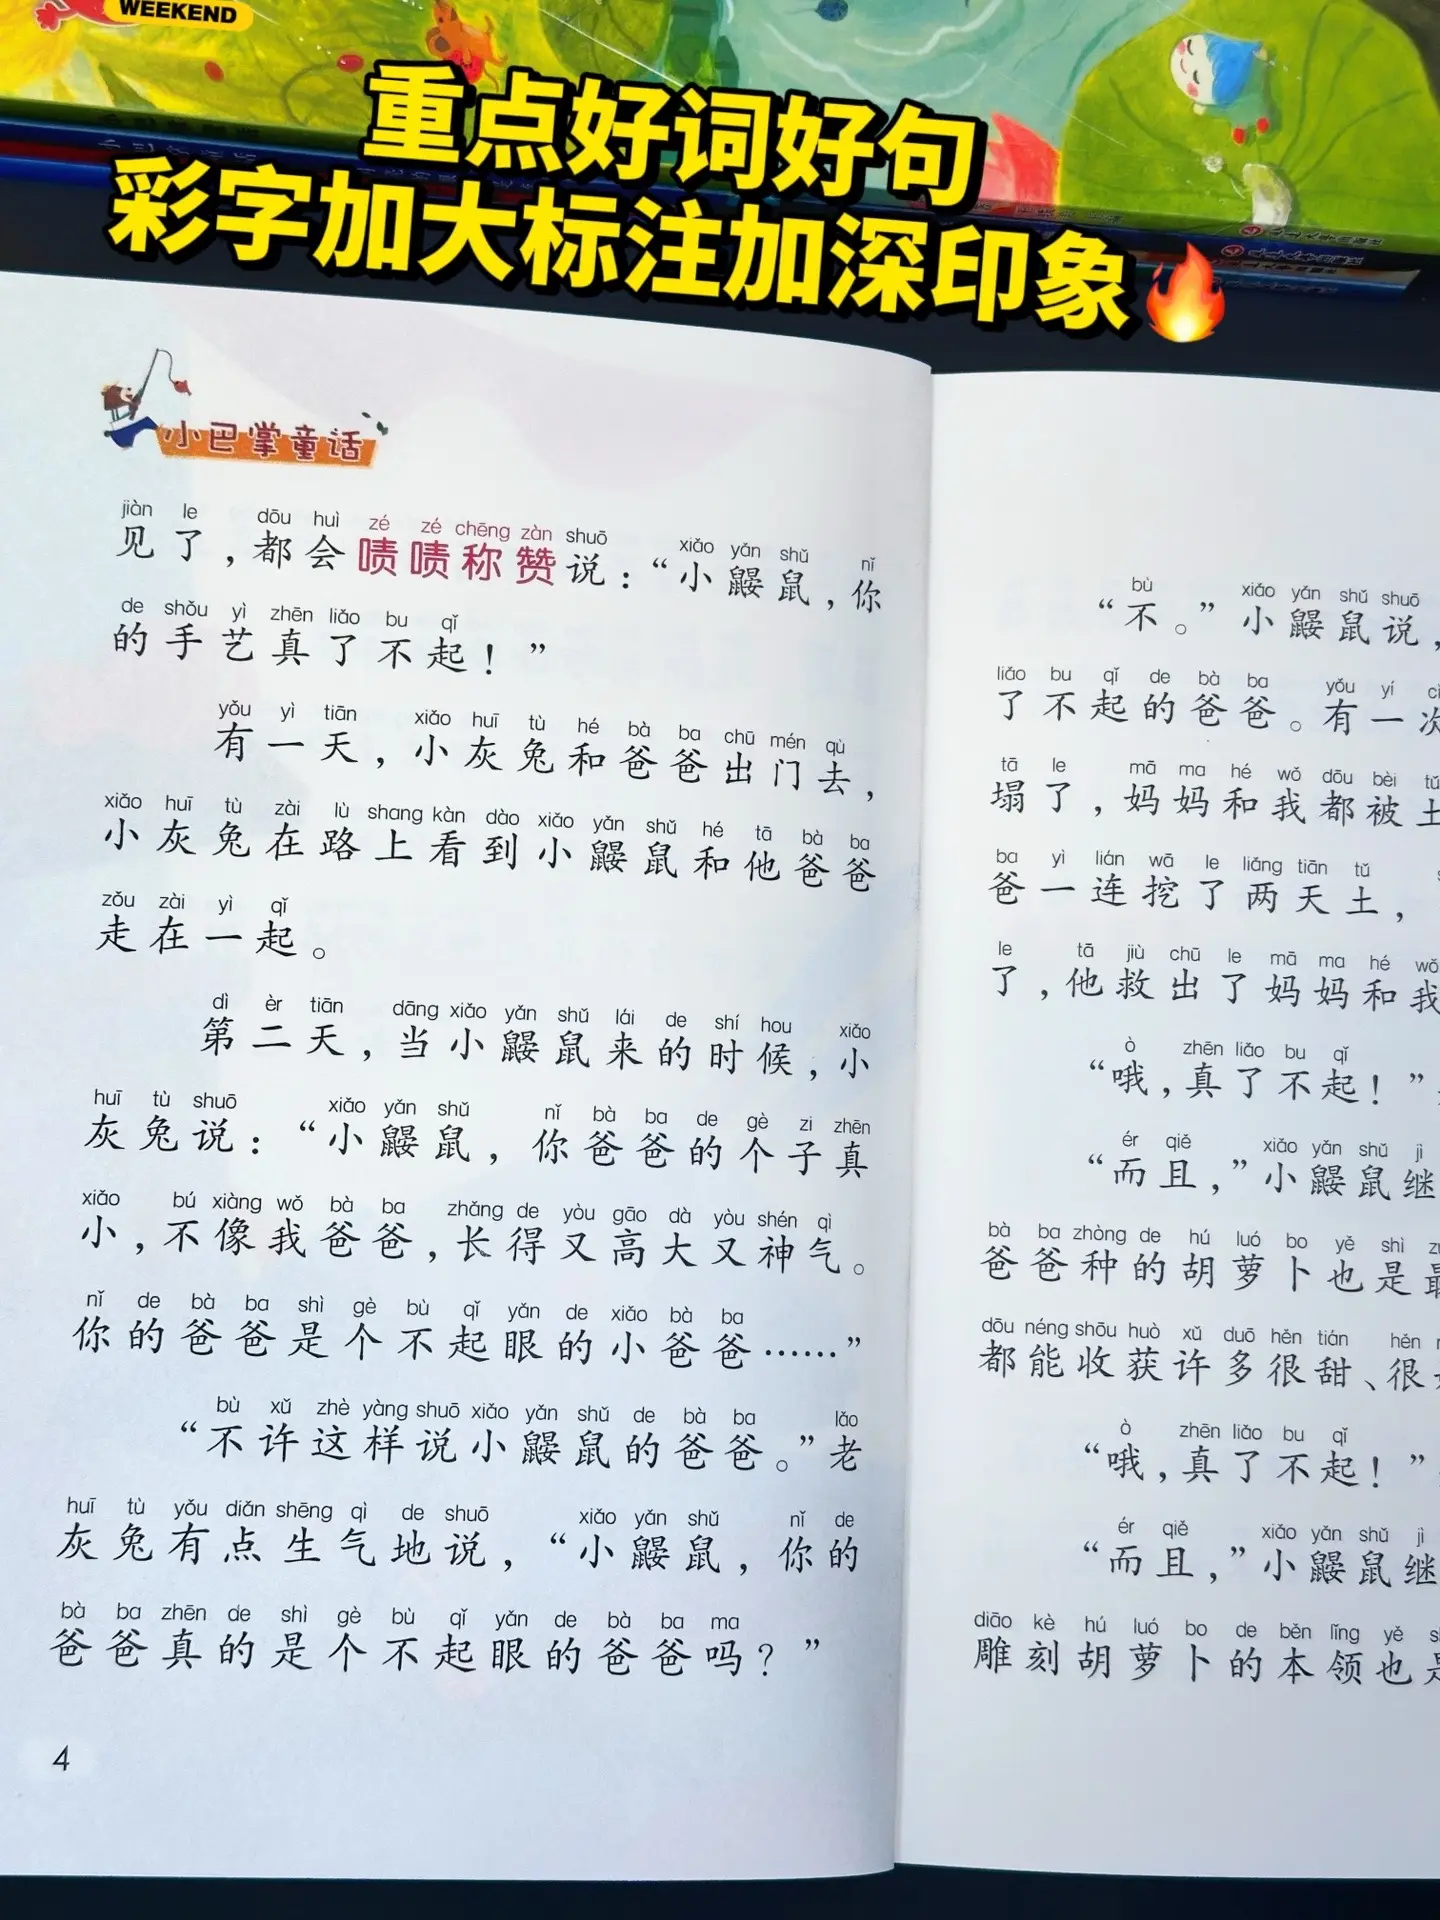 WEEKEND
重点好词好句
彩字加大标注加深印象
小巴掌童话
jiàn le dōu huì zé zé chēng zàn shuō xiǎo yǎn shǔ nǐ
见了，都会啧啧称赞说：“小鼹鼠，你
de shǒu yì zhēn liǎo bu qǐ
的手艺真了不起！”
yǒu yì tiān xiǎo huī tù hé bà ba chū mén qù
有一天，小灰兔和爸爸出门去，
xiǎo huī tù zài lù shang kàn dào xiǎo yǎn shǔ hé tā bà ba
小灰兔在路上看到小鼹鼠和他爸爸
zǒu zài yì qǐ
走在一起。
dì èr tiān dāng xiǎo yǎn shǔ lái de shí hou xiǎo
第二天，当小鼹鼠来的时候，小
huī tù shuō xiǎo yǎn shǔ nǐ bà ba de gè zi zhēn
灰兔说：“小鼹鼠，你爸爸的个子真
xiǎo bú xiàng wǒ bà ba zhǎng de yòu gāo dà yòu shén qì
小，不像我爸爸，长得又高大又神气。
nǐ de bà ba shì gè bù qǐ yǎn de xiǎo bà ba
你的爸爸是个不起眼的小爸爸……”
bù xǔ zhè yàng shuō xiǎo yǎn shǔ de bà ba lǎo
“不许这样说小鼹鼠的爸爸。”老
huī tù yǒu diǎn shēng qì de shuō xiǎo yǎn shǔ nǐ de
灰兔有点生气地说，“小鼹鼠，你的
bà ba zhēn de shì gè bù qǐ yǎn de bà ba ma
爸爸真的是个不起眼的爸爸吗？”
4
bù xiǎo yǎn shǔ shuō
“不。”小鼹鼠说，
liǎo bu qǐ de bà ba yǒu yí cì
了不起的爸爸。有一次
tā le mā ma hé wǒ dōu bèi tǔ
塌了，妈妈和我都被土
ba yì lián wā le liǎng tiān tǔ
爸一连挖了两天土，
le tā jiù chū le mā ma hé wǒ
了，他救出了妈妈和我
ò zhēn liǎo bu qǐ
“哦，真了不起！”
ér qiě xiǎo yǎn shǔ jì
“而且，”小鼹鼠继
bà ba zhòng de hú luó bo yě shì zuì
爸爸种的胡萝卜也是最
dōu néng shōu huò xǔ duō hěn tián hěn
都能收获许多很甜、很
ò zhēn liǎo bu qǐ
“哦，真了不起！”
ér qiě xiǎo yǎn shǔ jì
“而且，”小鼹鼠继
diāo kè hú luó bo de běn lǐng yě shì
雕刻胡萝卜的本领也是